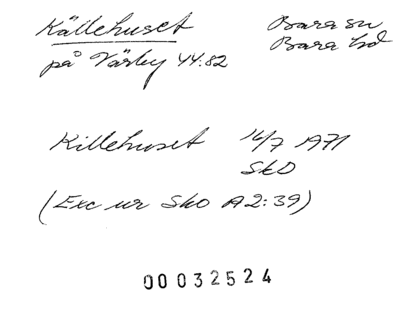 Källehuset
på Värby 44:82
Bara sn
Bara hd
Killehuset 16/7 1971
SkO
(Exc ur SkO A2:39)
00032524